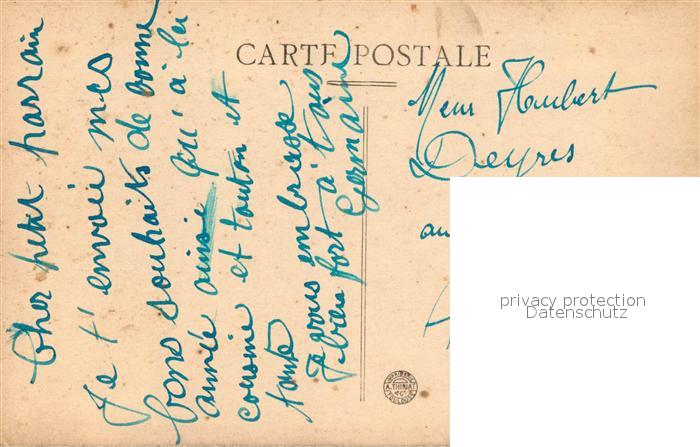 CARTE POSTALE
Cher petit parrain
Je t'envoie mes
bons souhaits de bonne
année ainsi qu'à la
cousine et tonton et
tante
Je vous embrasse
bien fort à tous
Germaine
Meur Haubert
Deyres
au
privacy protection
Datenschutz
A. THIRIAT
& Cie
TOULOUSE